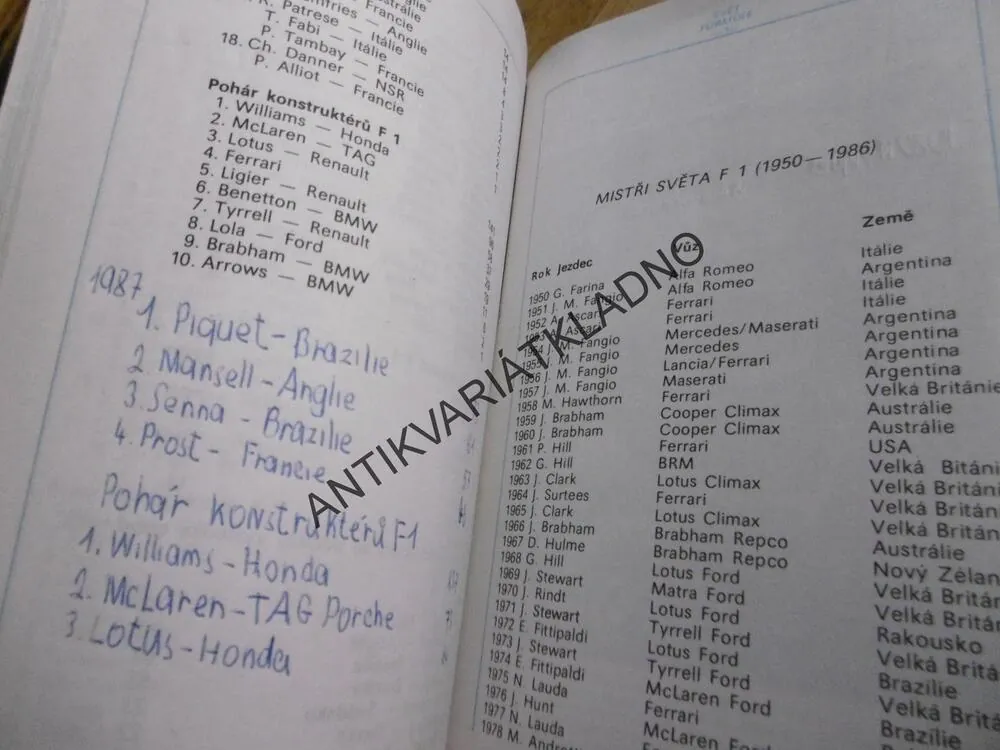 Anglie
R. Patrese — Itálie
T. Fabi — Itálie
P. Tambay — Francie
18. Ch. Danner — NSR
P. Alliot — Francie
Pohár konstruktérů F 1
1. Williams — Honda
2. McLaren — TAG
3. Lotus — Renault
4. Ferrari
5. Ligier — Renault
6. Benetton — BMW
7. Tyrrell — Renault
8. Lola — Ford
9. Brabham — BMW
10. Arrows — BMW
1987
1. Piquet - Brazilie
2 Mansell - Anglie
3. Senna - Brazilie
4. Prost - Francie
Pohár konstruktérů F1
1. Williams - Honda
2. McLaren - TAG Porche
3. Lotus - Honda
MISTŘI SVĚTA F 1 (1950—1986)
Rok Jezdec Vůz Země
1950 G. Farina Alfa Romeo Itálie
1951 J. M. Fangio Alfa Romeo Argentina
1952 A. Ascari Ferrari Itálie
1953 A. Ascari Ferrari Itálie
1954 J. M. Fangio Mercedes/Maserati Argentina
1955 J. M. Fangio Mercedes Argentina
1956 J. M. Fangio Lancia/Ferrari Argentina
1957 J. M. Fangio Maserati Argentina
1958 M. Hawthorn Ferrari Velká Británie
1959 J. Brabham Cooper Climax Austrálie
1960 J. Brabham Cooper Climax Austrálie
1961 P. Hill Ferrari USA
1962 G. Hill BRM Velká Bitánie
1963 J. Clark Lotus Climax Velká Británi
1964 J. Surtees Ferrari Velká Británi
1965 J. Clark Lotus Climax Velká Britán
1966 J. Brabham Brabham Repco Austrálie
1967 D. Hulme Brabham Repco Nový Zélan
1968 G. Hill Lotus Ford Velká Britán
1969 J. Stewart Matra Ford Velká Britá
1970 J. Rindt Lotus Ford Rakousko
1971 J. Stewart Tyrrell Ford Velká Brit
1972 E. Fittipaldi Lotus Ford Brazílie
1973 J. Stewart Tyrrell Ford Velká Br
1974 E. Fittipaldi McLaren Ford Brazílie
1975 N. Lauda Ferrari
1976 J. Hunt McLaren Ford
1977 N. Lauda Ferrari
1978 M. Andre
ANTIKVARIÁTKLADNO